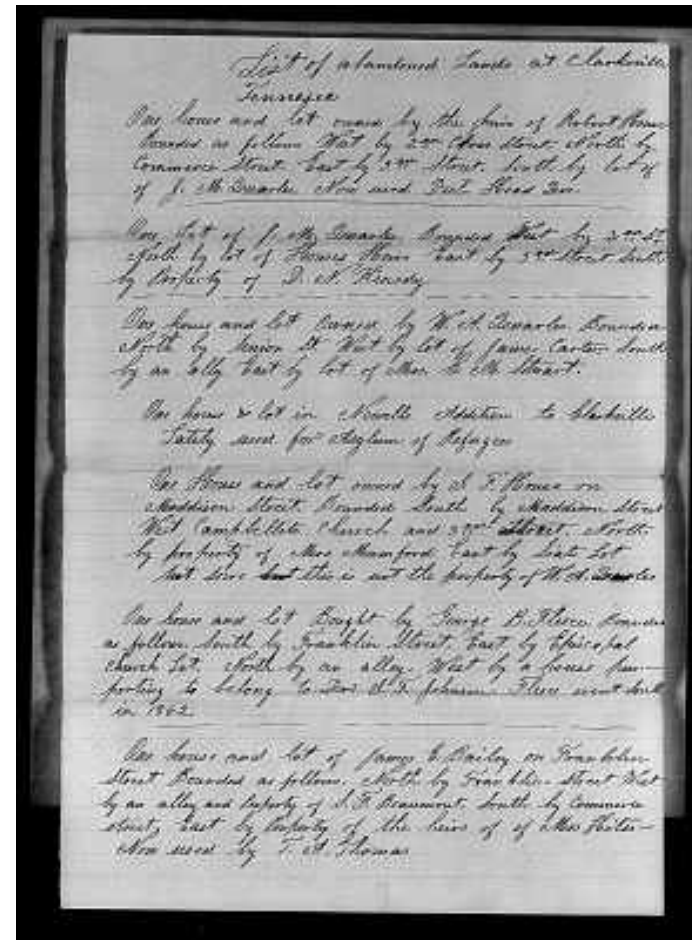 List of abandoned Lands at Clarksville
Tennessee
One house and lot owned by the heirs of Robert
Bounded as follows West by 2nd Cross Street. North by
Commerce Street. East by 3rd Street. South by lot of
of J. M. Quarles. Now used
One Lot of J. M. Quarles. Bounded West by 2nd St
North by lot of East by 3rd Street South
by Property of D. N. Kennedy
One house and lot owned by W. A. Quarles. Bounded
North by Union St West by lot of James Carter South
by an ally East by lot of Mrs Stuart.
One house & lot in Addition to Clarksville
Lately used for Asylum of Refugees
One House and lot owned by on
Maddison Street. Bounded South by Maddison Street
West Campbellite Church and 3rd Street. North
by property of Mrs Mumford East by Lot
not sure but this is not the property of W. A. Quarles
One house and lot Bought by George B. Fleece Bounded
as follows. South by Franklin Street. East by Episcopal
Church Lot. North by an alley. West by a house pur-
porting to belong to Johnson. Fleece went South
in 1862
One house and lot of James E. Bailey on Franklin
Street Bounded as follows. North by Franklin Street West
by an alley and Property of Beaumont. South by Commerce
street, East by Property of the heirs of of Mrs
Now used by Thomas